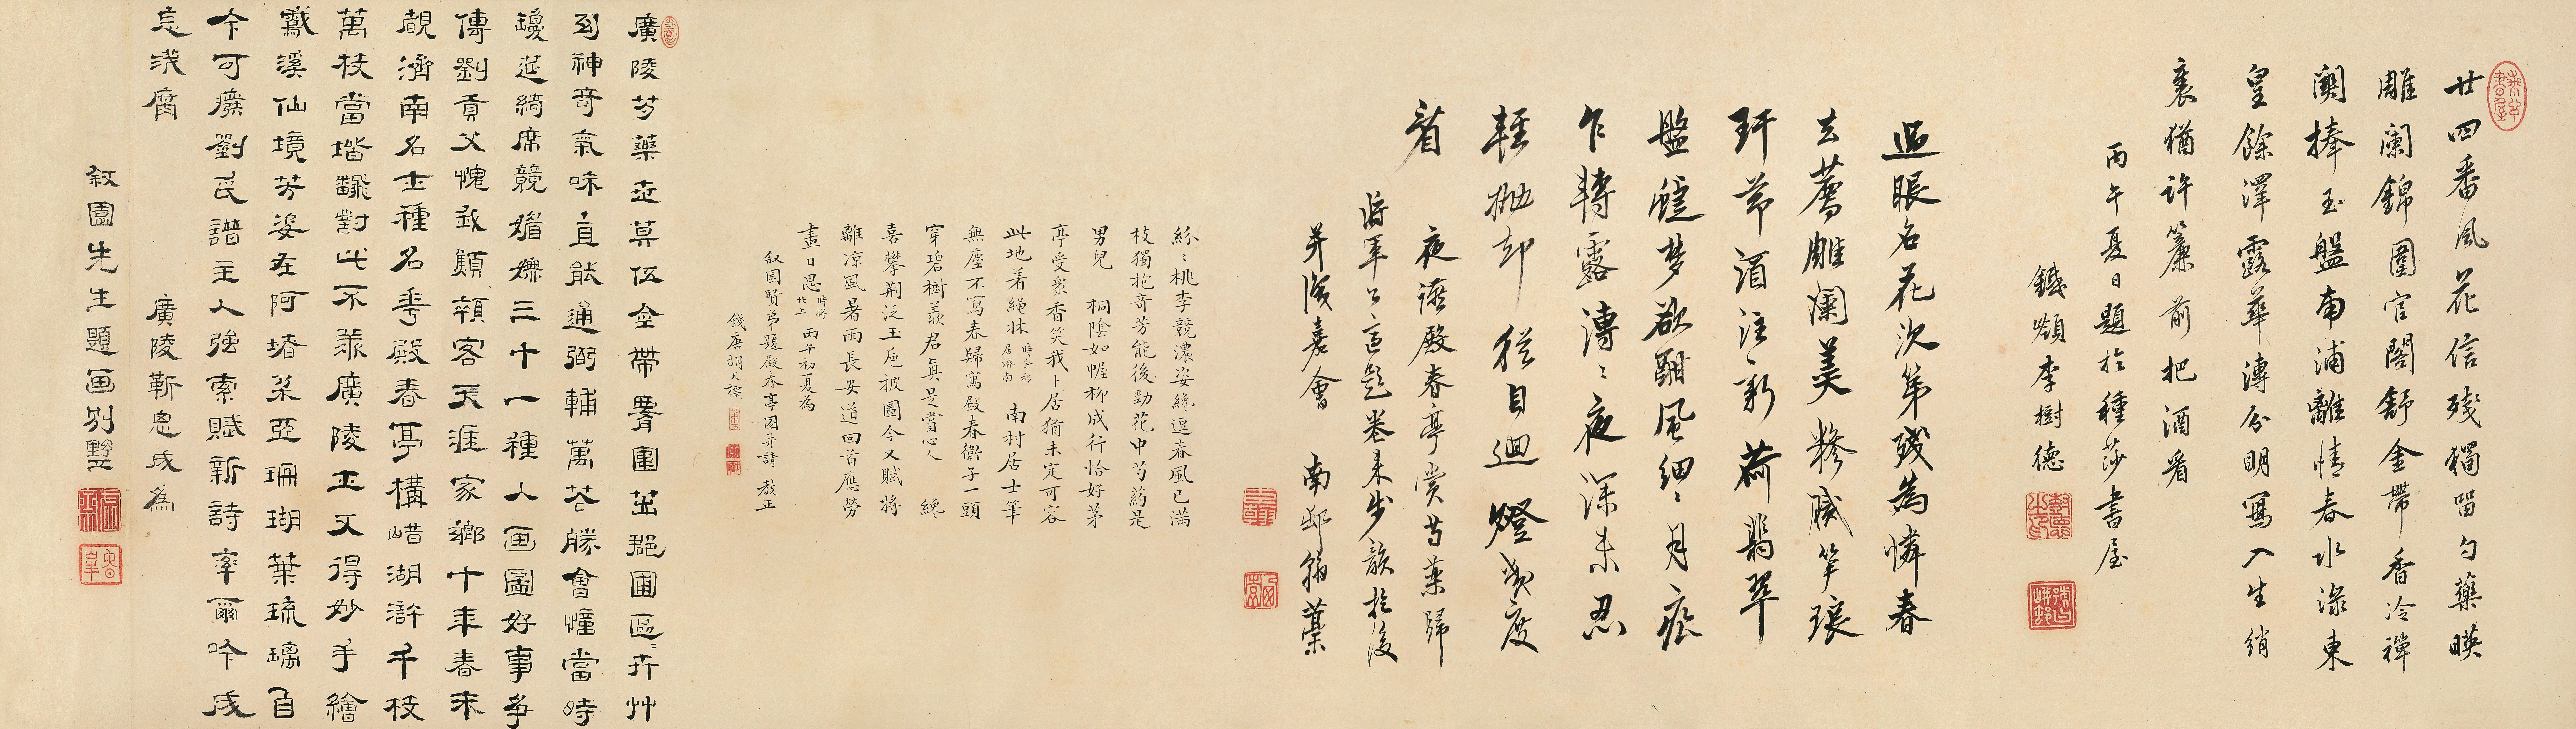 廿四番風花信殘獨留勺藥暎
雕闌錦圍官閣舒金帶香冷禪
闋捧玉盤南浦離情春水淥東
皇餘澤露華漙分明寫入生綃
裏猶許簾前把酒看
丙午夏日題於種莎書屋
鐵嶺李樹德
過眼名花次第殘為憐春
去落雕闌美
新荷翡翠
盤 夢欲酣風細〻月痕
乍轉露漙〻夜深未忍
輕抛却 從自廻燈幾度
看
夜讌殿春亭賞芍藥歸
將軍公 卷未步韻於後
并識嘉會 南邨翁藁
紛〻桃李競濃姿纔逗春風已滿
枝獨抱奇芳能後勁花中芍药是
男兒 桐陰如幄柳成行恰好茅
亭受眾香笑我卜居猶未定可容
此地着繩牀 時余移居濟南 南村居士筆
無塵不寫春歸寫殿春衛子一頭
穿碧樹羨君真是賞心人 纔
喜攀荆泛玉卮披圖今又賦將
離凉風暑雨長安道回首應勞
盡日思 時將北上 丙午初夏為
叙園賢弟題殿春亭圖并請 教正
錢唐胡天
廣陵芍藥世莫伍金帶署圍出郡圃區〻卉艸
神奇氣味直能通弼輔萬花勝會憧當時
縵莚綺席競媚嫵三十一種人畫圖好事爭
傳劉貢父愧我顛領客天涯家鄉十年春未
覩濟南名士種名花殿春亭構㟙湖滸千枝
萬枝當堦飜對此不羡廣陵土又得妙手繪
鸞溪仙境芳姿在阿堵朵亞珊瑚葉琉璃自
今可廢劉氏譜主人強索賦新詩率爾吟成
忘淺腐 廣陵靳 成為
叙園先生題画別墅